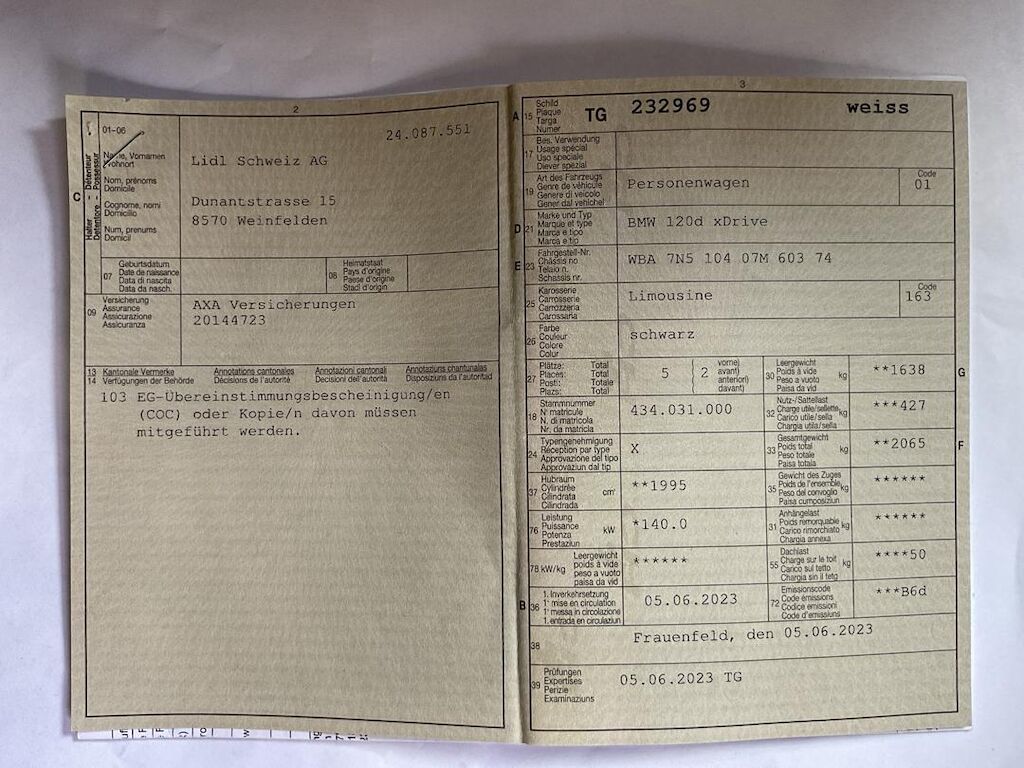 2
01-06
24.087.551
C
Halter - Détenteur
Detentore - Possessur
Name, Vornamen
Wohnort
Nom, prénoms
Domicile
Cognome, nomi
Domicilio
Num, prenums
Domicil
Lidl Schweiz AG
Dunantstrasse 15
8570 Weinfelden
07
Geburtsdatum
Date de naissance
Data di nascita
Data da nasch.
08
Heimatstaat
Pays d'origine
Paese d'origine
Stadi d'origin
09
Versicherung
Assurance
Assicurazione
Assicuranza
AXA Versicherungen
20144723
13 Kantonale Vermerke Annotations cantonales Annotazioni cantonali Annotaziuns chantunalas
14 Verfügungen der Behörde Décisions de l'autorité Decisioni dell'autorità Disposiziuns da l'autoritad
103 EG-Übereinstimmungsbescheinigung/en
(COC) oder Kopie/n davon müssen
mitgeführt werden.
3
A 15
Schild
Plaque
Targa
Numer
TG 232969 weiss
17
Bes. Verwendung
Usage spécial
Uso speciale
Diever spezial
19
Art des Fahrzeugs
Genre de véhicule
Genere di veicolo
Gener dal vehichel
Personenwagen
Code
01
D 21
Marke und Typ
Marque et type
Marca e tipo
Marca e tip
BMW 120d xDrive
E 23
Fahrgestell-Nr.
Châssis no
Telaio n.
Schassis nr.
WBA 7N5 104 07M 603 74
25
Karosserie
Carrosserie
Carrozzeria
Carossaria
Limousine
Code
163
26
Farbe
Couleur
Colore
Colur
schwarz
27
Plätze: Total
Places: Total
Posti: Totale
Plazs: Total
5
2
vorne)
avant)
anteriori)
davant)
30
Leergewicht
Poids à vide
Peso a vuoto
Paisa da vid
kg
**1638
G
18
Stammnummer
N° matricule
N. di matricola
Nr. da matricla
434.031.000
32
Nutz-/Sattellast
Charge utile/sellette
Carico utile/sella
Chargia utila/sella
kg
***427
24
Typengenehmigung
Réception par type
Approvazione del tipo
Approvaziun dal tip
X
33
Gesamtgewicht
Poids total
Peso totale
Paisa totala
kg
**2065
F
37
Hubraum
Cylindrée
Cilindrata
Cilindrada
cm³
**1995
35
Gewicht des Zuges
Poids de l'ensemble
Peso del convoglio
Paisa cumposiziun
kg
******
76
Leistung
Puissance
Potenza
Prestaziun
kW
*140.0
31
Anhängelast
Poids remorquable
Carico rimorchiato
Chargia annexa
kg
******
78 kW/kg
Leergewicht
poids à vide
peso a vuoto
paisa da vid
******
55
Dachlast
Charge sur le toit
Carico sul tetto
Chargia sin il tetg
kg
****50
B 36
1. Inverkehrsetzung
1re mise en circulation
1a messa in circolazione
1. entrada en circulaziun
05.06.2023
72
Emissionscode
Code émissions
Codice emissioni
Code d'emissiuns
***B6d
38
Frauenfeld, den 05.06.2023
39
Prüfungen
Expertises
Perizie
Examinaziuns
05.06.2023 TG